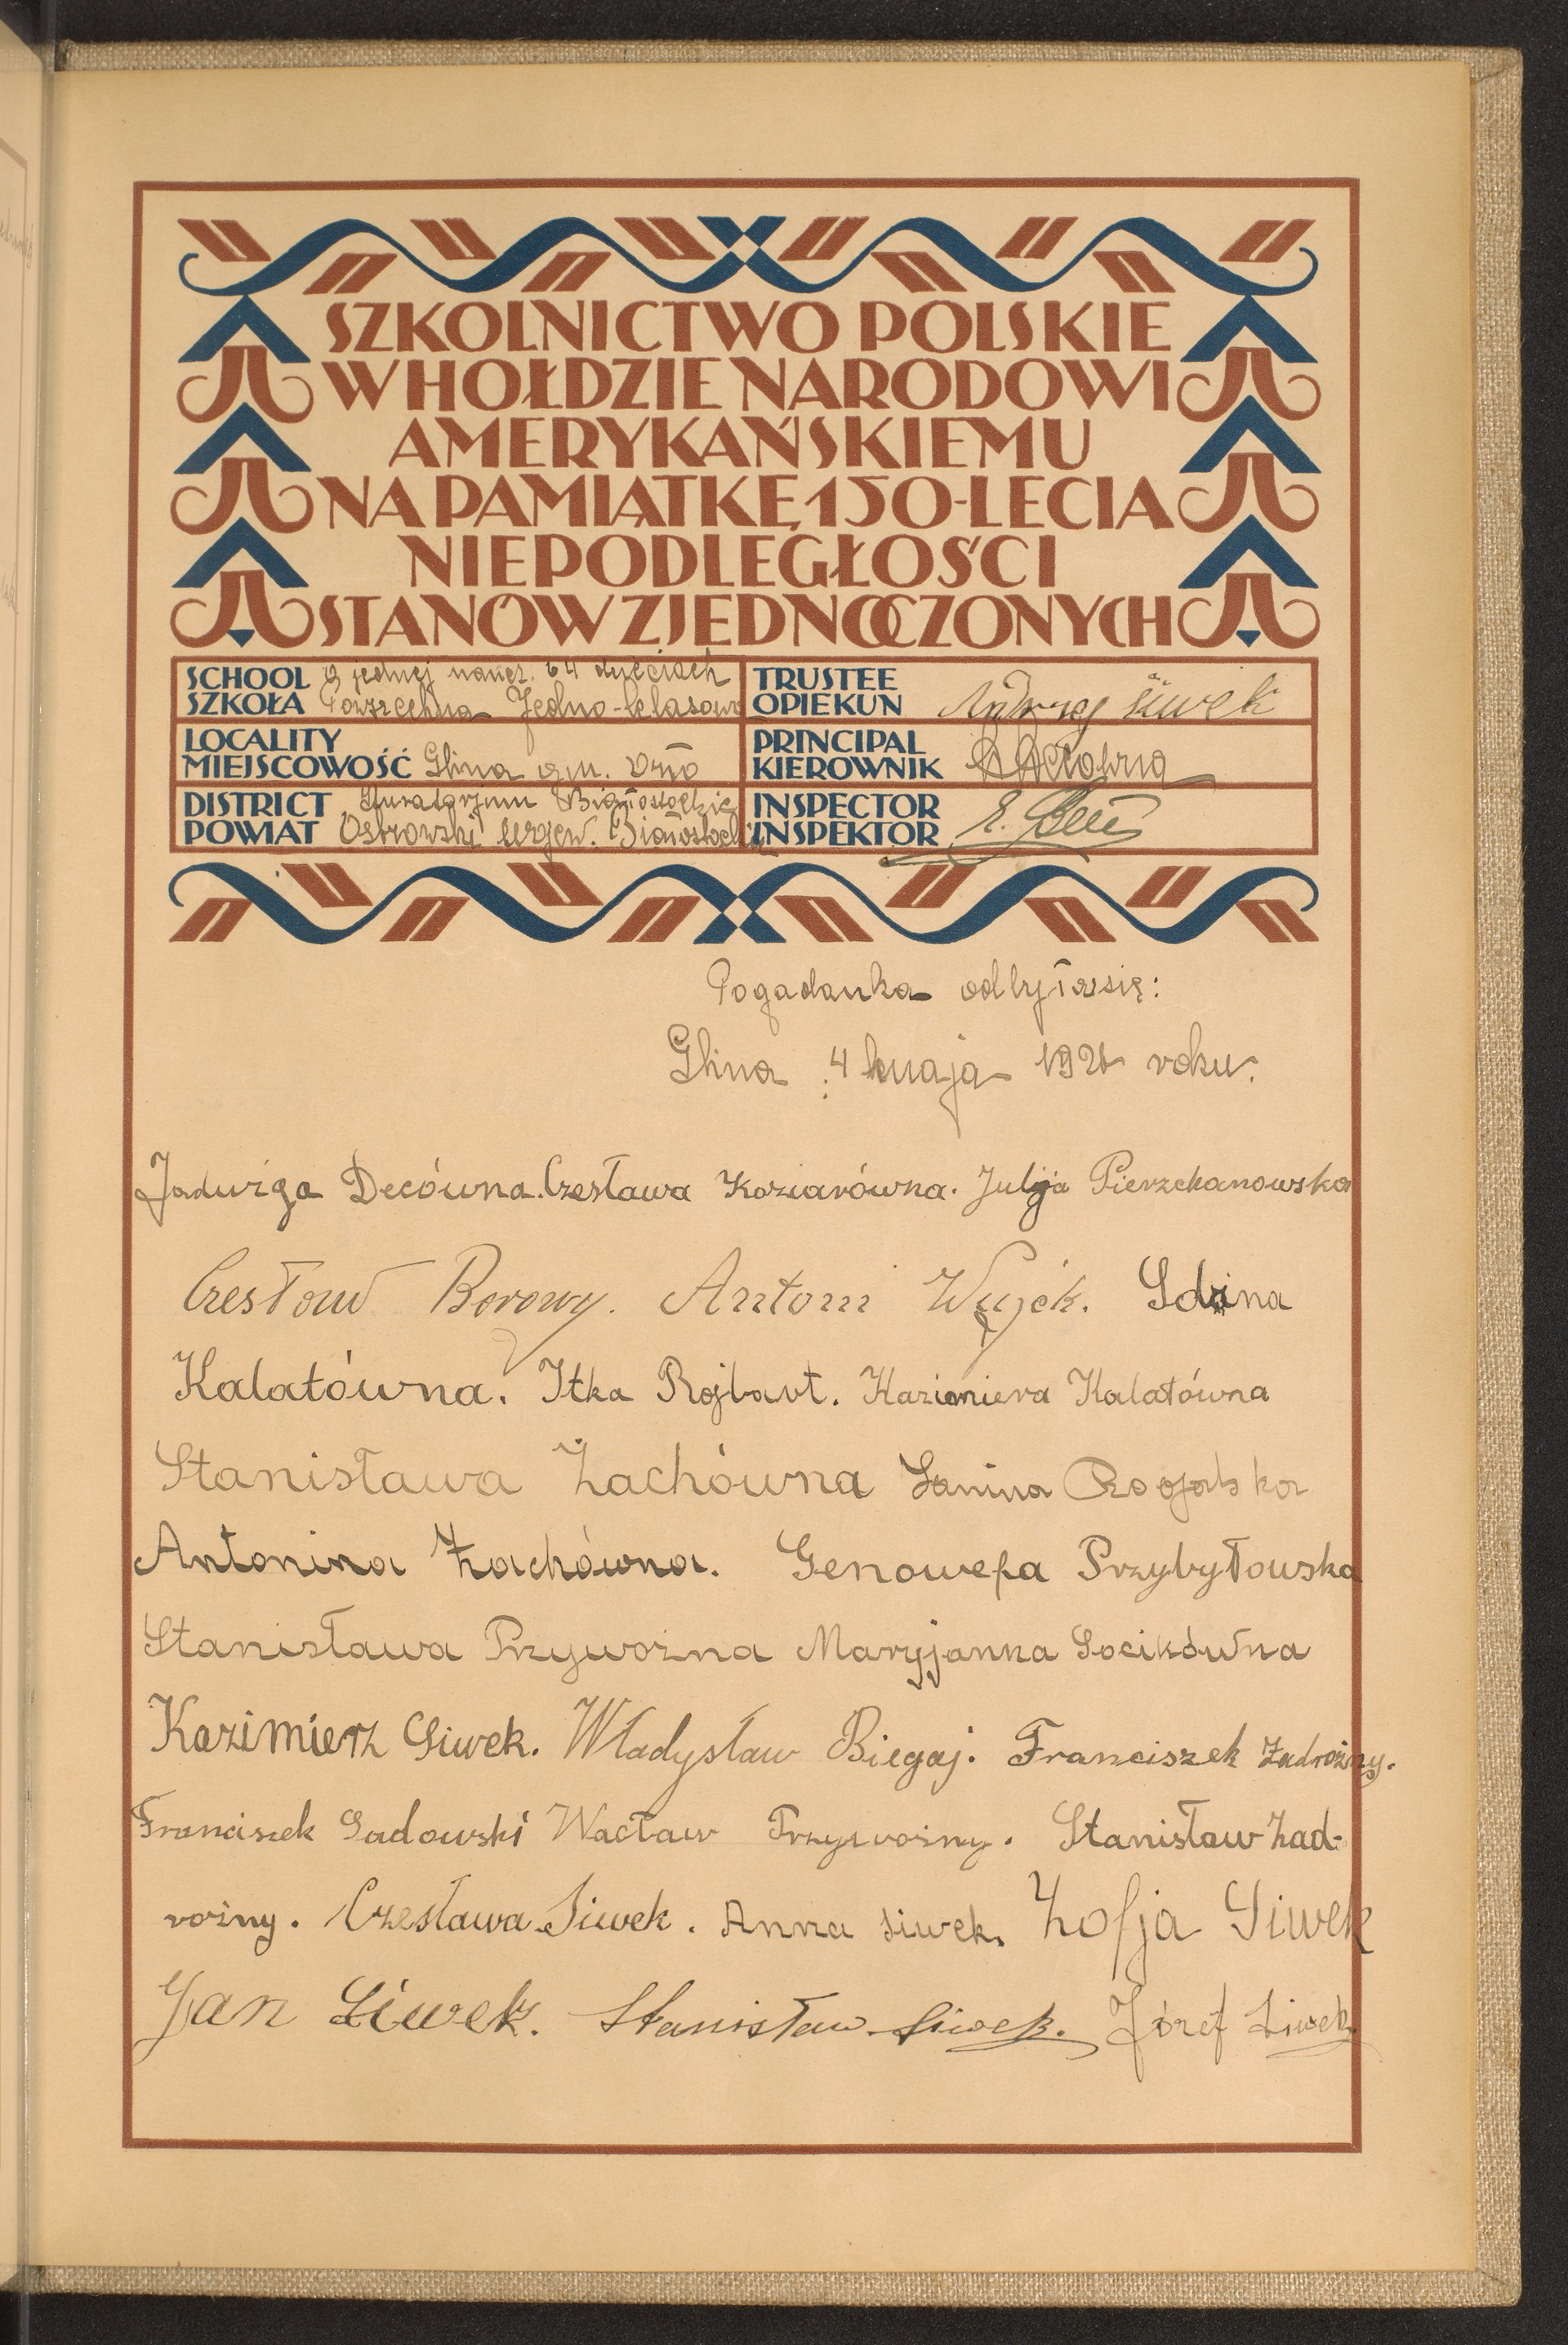 SZKOLNICTWO POLSKIE
W HOŁDZIE NARODOWI
AMERYKAŃSKIEMU
NA PAMIĄTKĘ 150-LECIA
NIEPODLEGŁOŚCI
STANÓW ZJEDNOCZONYCH
SCHOOL o jednej naucz. 64 dzieciach
SZKOŁA Powszechna Jedno-klasowa
TRUSTEE
OPIEKUN Andrzej Siwek
LOCALITY
MIEJSCOWOŚĆ Glina gm.
PRINCIPAL
KIEROWNIK
DISTRICT Kuratorjum Białostockie
POWIAT Ostrowski
INSPECTOR
INSPEKTOR
Pogadanka odbyła się:
Glina 4 maja 1926 roku.
Jadwiga Decówna. Czesława Koziarówna. Julja Pierzchanowska
Czesław Borowy. Antoni Wujek. Gdina
Kalatówna. Itka Rojbart. Kazimiera Kalatówna
Stanisława Zachówna Janina
Antonina Zachówna. Genowefa Przybyłowska
Stanisława Przywoźna Maryjanna Socikówna
Kazimierz Siwek. Władysław Biegaj. Franciszek Zadrożny.
Franciszek Sadowski Wacław Przywoźny. Stanisław Zad-
rożny. Czesława Siwek. Anna Siwek. Zofja Siwek
Jan Siwek. Stanisław Siwek. Józef Siwek